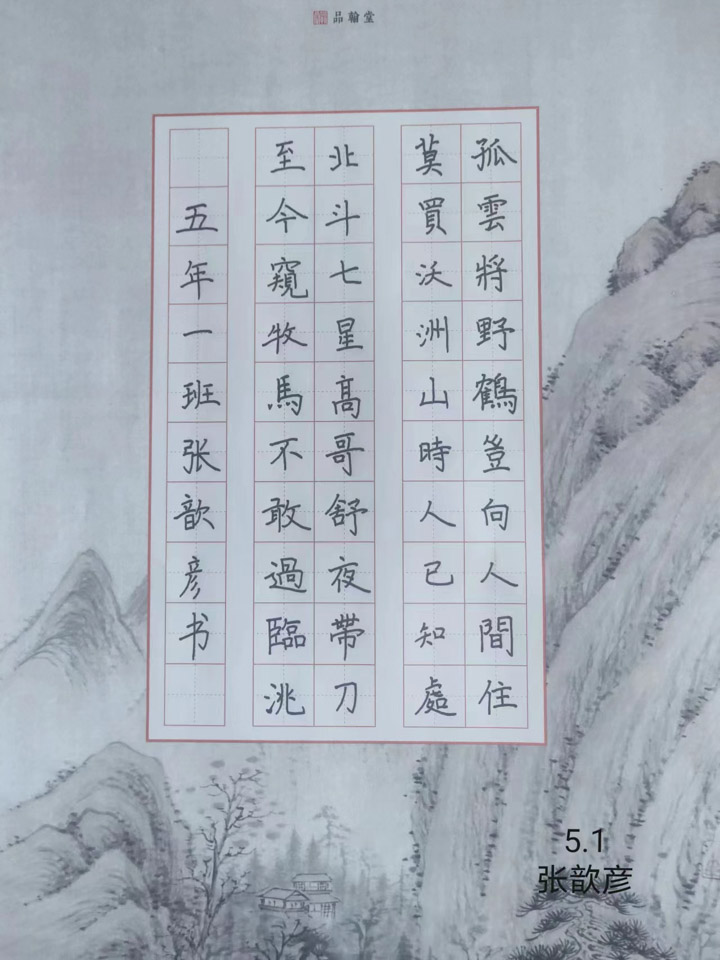 品翰堂
孤雲將野鶴豈向人間住
莫買沃洲山時人已知處
北斗七星高哥舒夜帶刀
至今窺牧馬不敢過臨洮
五年一班张歆彦书
5.1
张歆彦